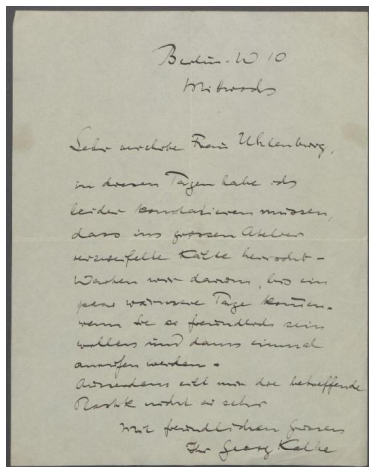 Berlin-W 10
Mittwochs
Sehr verehrte Frau Uhlenburg,
in diesen Tagen habe ich
leider konstatieren müssen,
dass im grossen Atelier
verzweifelte Kälte herrscht -
Warten wir darum, bis ein
paar wärmere Tage kommen -
wenn Sie so freundlich sein
wollen und dann einmal
anrufen werden -
Ausserdem eilt mir die betreffende
Plastik nicht so sehr
Mit freundlichen Grüssen
Ihr Georg Kolbe